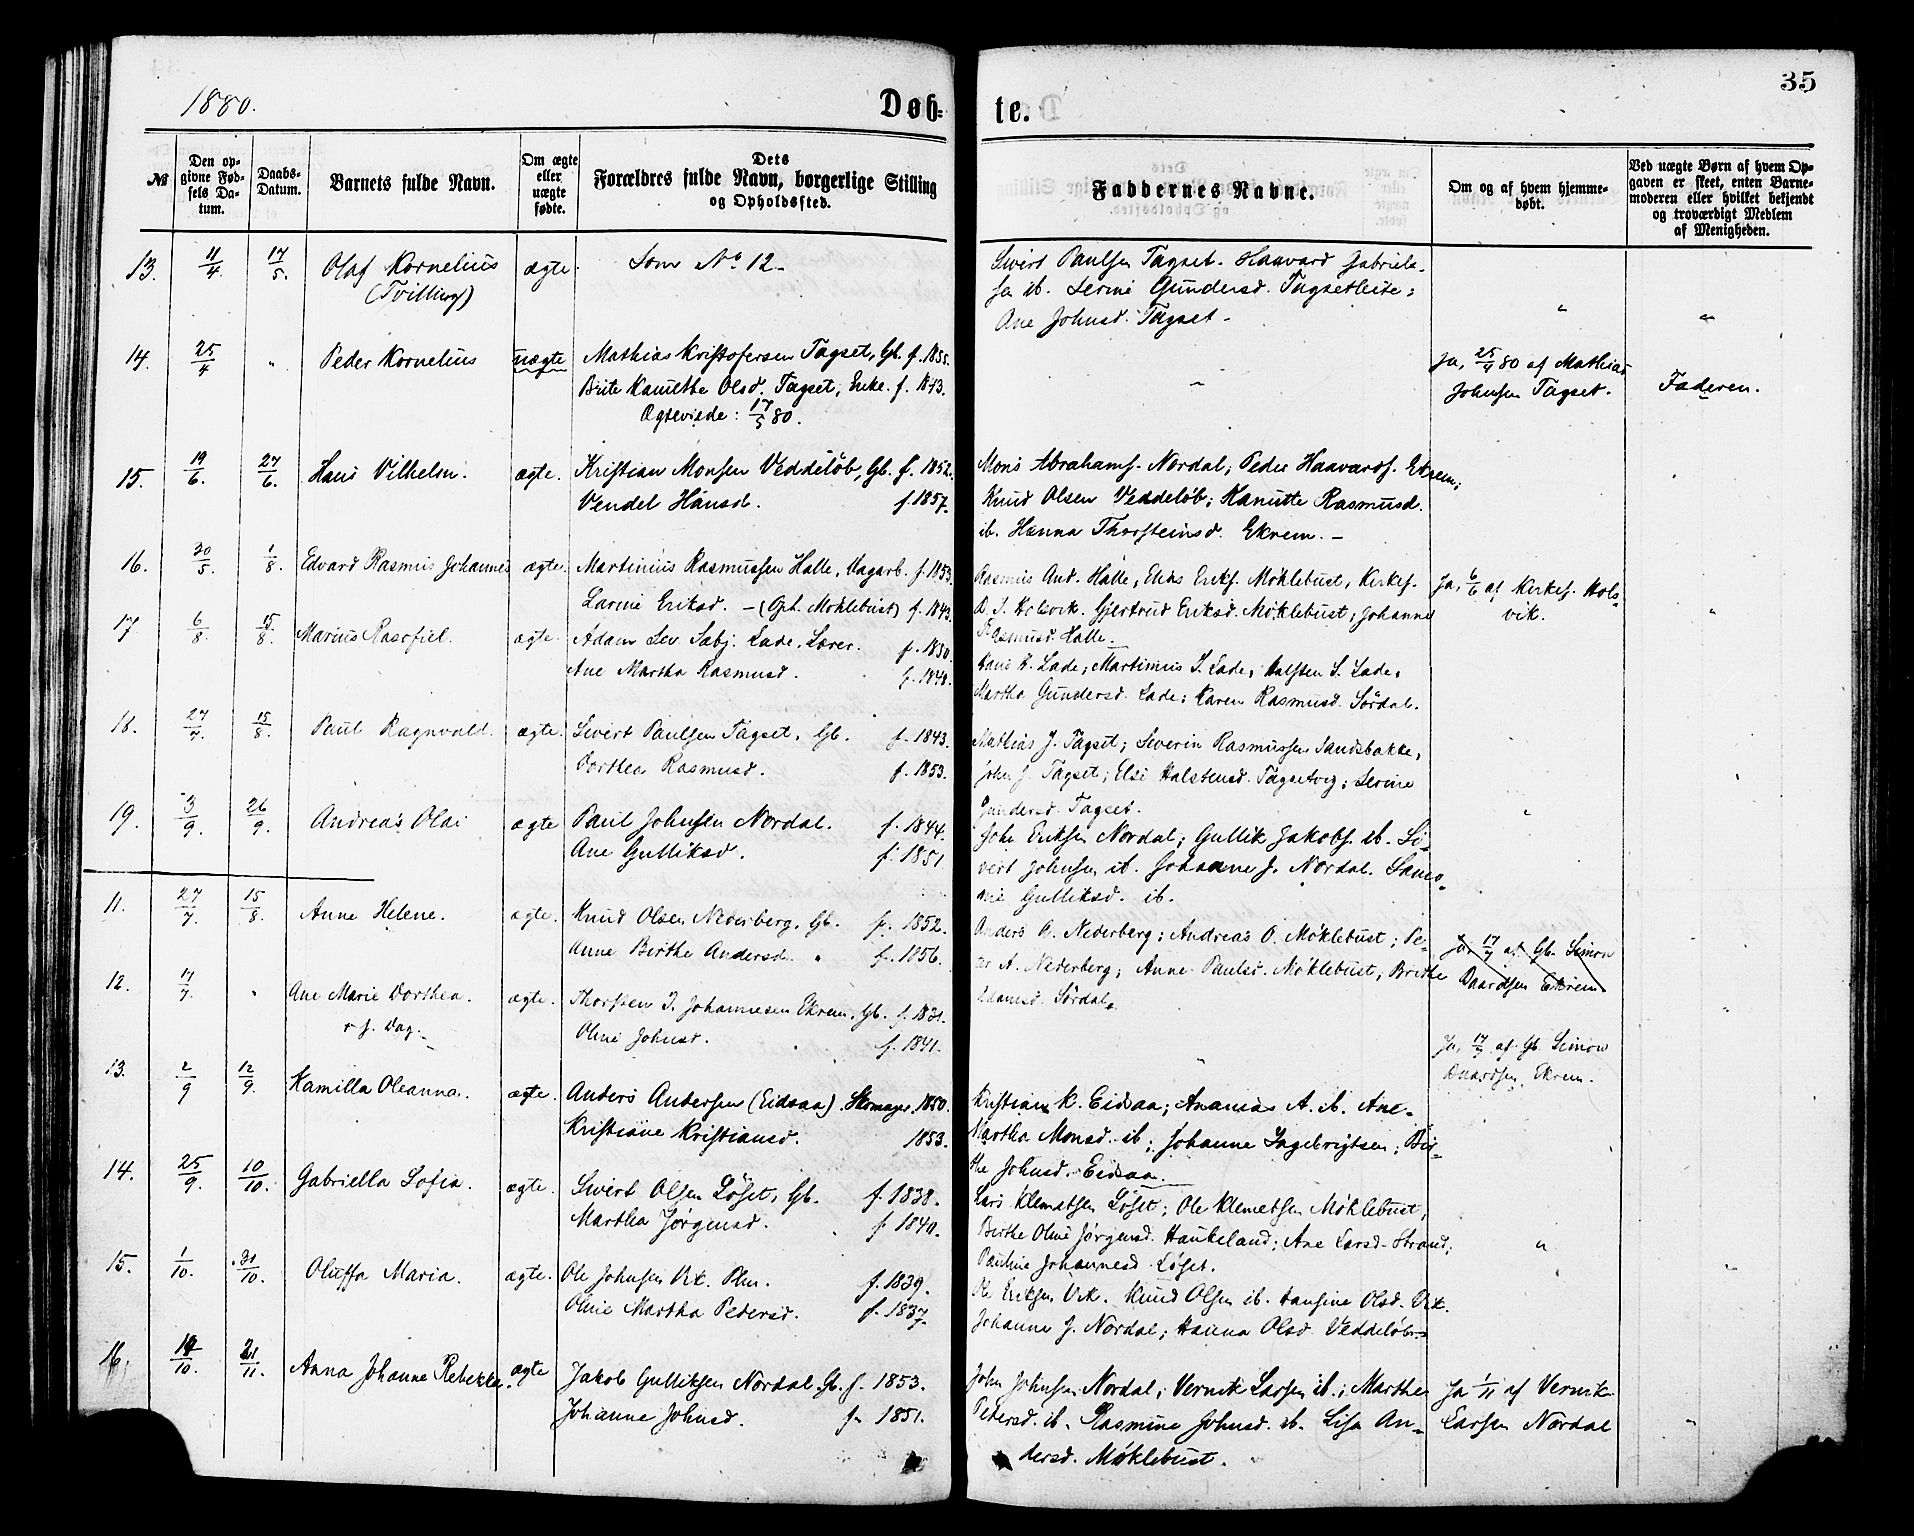 1880.
Døb-
te.
35
№
Den op-
givne Fød-
sels Da-
tum.
Daabs-
Datum.
Barnets fulde Navn.
Om ægte
eller
uægte
fødte.
Dets
Forældres fulde Navn, borgerlige Stilling
og Opholdssted.
Faddernes Navne.
Om og af hvem hjemme-
døbt.
Ved uægte Børn af hvem Op-
gaven er skeet, enten Barne-
moderen eller hvilket bekjendt
og troværdigt Medlem
af Menigheden.
13. 11/4. 17/5. Olaf Kornelius ægte. Som No 12.
(Tvilling)
Sivert Paulsen Tagset. Haavard Gabriel-
sen ib. Serine Gundersd. Tagsetleite;
Ane Johnsd. Tagset.
14. 25/4 " Peder Kornelius uægte Mathias Kristofersen Tagset, Gb. f. 1855.
Brite Kanutte Olsd. Tagset, Enke. f. 1843.
Ægteviede: 17/5 80.
Ja, 25/4 80 af Mathias
Johnsen Tagset.
Faderen.
15. 19/6. 27/6. Hans Vilhelm. ægte. Kristian Monsen Veddeløb, Gb. f. 1852.
Vendel Hansd. f. 1857.
Mons Abrahams. Nordal; Peder Haavards. Ekrem;
Knud Olsen Veddeløb; Kanutte Rasmusd.
ib. Hanna Thorsteinsd. Ekrem.
16. 30/5. 1/8. Edvard Rasmus Johannes ægte. Martinius Rasmussen Halle, f. 1853.
Larine Eriksd. (Oph. Møklebust) f. 1843.
Rasmus And. Halle, Elias Eriks. Møklebust, Kirkes.
Holsvik. Gjertrud Eriksd. Møklebust, Johanne
Rasmusd. Halle.
Ja, 6/6 af Kirkes. Hols-
vik.
17 6/8. 15/8. Marius ægte Adam Lade, Lærer. f. 1830.
Ane Martha Rasmusd. f. 1840.
Hans H. Lade; Martinius S. Lade, Halsten S. Lade,
Martha Gundersd. Lade; Karen Rasmusd. Sørdal.
18. 27/7. 15/8. Paul Ragnvald. ægte. Sivert Paulsen Tagset, Gb. f. 1843.
Dorthea Rasmusd. f. 1853.
Mathias J. Tagset; Severin Rasmussen Sandsbakke,
John J. Tagset; Elsi Halstensd. Tagsetvig; Serine
Gundersd. Tagset.
19. 3/9. 26/9. Andreas Olai ægte Paul Johnsen Nordal. f. 1844.
Ane Gulliksd. f. 1851
John Eriksen Nordal; Gullik Jakobs. ib. Si-
vert Johnsen ib. Johanne J. Nordal. Samo-
nie Gulliksd. ib.
11. 27/7 15/8. Anne Helene. ægte. Knud Olsen Nederberg, Gb. f. 1852.
Anne Birthe Andersd. " f. 1856.
Anders A. Nederberg; Andreas O. Møklebust; Pe-
der A. Nederberg; Anne Paulsd. Møklebust; Birthe
Sørdal.
Ja, 17/7 af Gb. Simon
Daardsen Ekrem
12. 17/7. " Ane Marie Dorthea. ægte. Thorsten J. Johannesen Ekrem, Gb. f. 1831.
Oline Johnsd. f. 1841.
Ja, 17/7 af Gb Simon
Ekrem.
13. 2/9 12/9. Kamilla Oleanna. ægte. Anders Andersen (Eidsaa). Skomager. 1850.
Kristiane Kristiansd. 1853.
Kristian K. Eidsaa; Ananias A. ib. Ane
Martha Monsd. ib; Johanne Ingebrigtsen; Bir-
the Johnsd. Eidsaa.
14. 25/9. 10/10. Gabriella Sofia. ægte. Sivert Olsen Løset, Gb. f. 1838.
Martha Jørgensd. f 1840.
Lars Klemetsen Løset; Ole Klemetsen Møklebust;
Birthe Oline Jørgensd. Haukeland; Ane Larsd. Strand;
Pauline Johannesd. Løset.
15. 1/10. 31/10. Oluffa Maria. ægte. Ole Johnsen Vik. f. 1839.
Oline Martha Pedersd. f. 1837.
Ole Eriksen Vik. Knud Olsen ib. Hansine Olsd. Vik.
Johanne J. Nordal; Hanna Olsd. Veddeløb.
16. 19/10. 21/11. Anna Johanne Rebekka. ægte Jakob Gulliksen Nordal, Gb. f. 1853.
Johanne Johnsd. f. 1851.
John Johnsen Nordal; Vernik Larsen ib.; Marthe
Pedersd. ib. Rasmine Johnsd. ib. Lisa An-
dersd. Møklebust.
Ja 1/11 af Vernik
Larsen Nordal